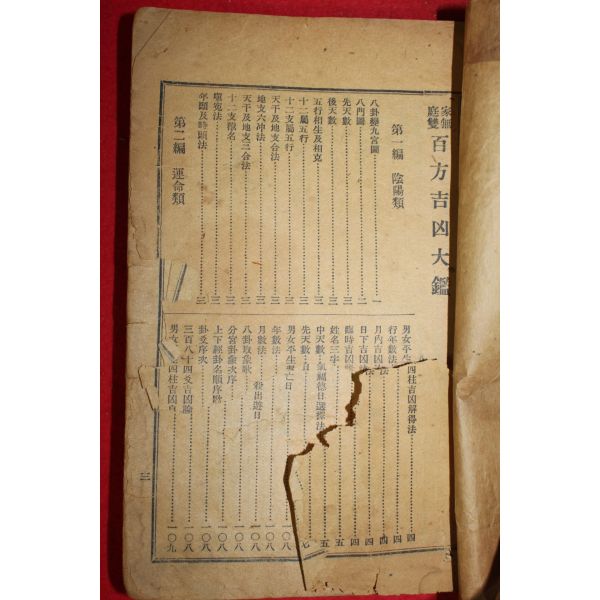 家庭無雙 百方吉凶大鑑
第一編 陰陽類
八卦變九宮圖 一
八門圖 二
先天數 二
後天數 二
五行相生及相克 二
十二屬五行 二
十二支屬五行 二
天干及地支合法 二
地支六冲法 二
天干及地支三合法 三
十二支獸名 三
嗔寃法 三
年頭及時頭法 三
第二編 運命類
男女平生四柱吉凶解得法 四
行年數法 四
月內吉凶法 四
日下吉凶法 四
臨時吉凶 四
姓名三字 五
中天數 五
生氣福德日選擇法
先天數
男女平生 亡日 一〇八
年數法 一〇八
月數法 殺出遊日 一〇八
八卦取象歌 一〇八
分宮卦象次序 一〇八
上下經卦名順序歌 一〇八
卦爻序次 一〇八
三百八十四爻吉凶論 一〇八
男女 四柱吉凶 一〇九
三